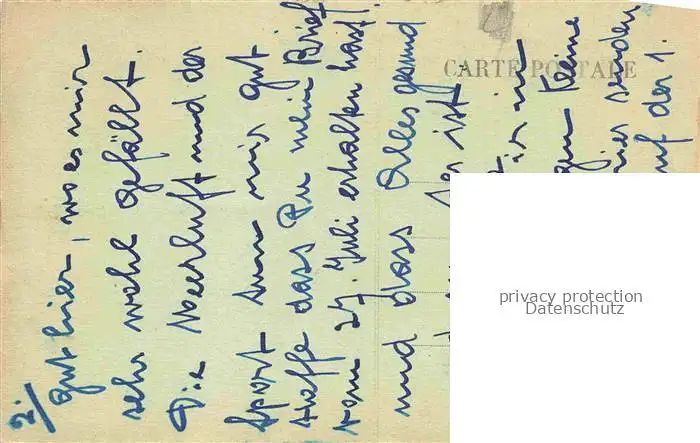 2./
gut hier, wo es mir
sehr wohl gefällt.
Die Meerluft und der
Sport tun mir gut
hoffe dass Du mein Brief
vom 27. Juli erhalten hast.
und dass Alles gesund
ist.
keine
senden
auf der 1.
CARTE POSTALE
privacy protection
Datenschutz